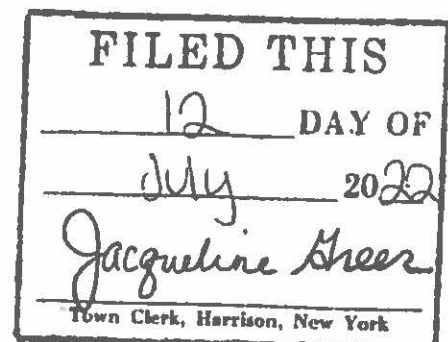 FILED THIS
12 DAY OF
July 2022
Jacqueline Greer
Town Clerk, Harrison, New York